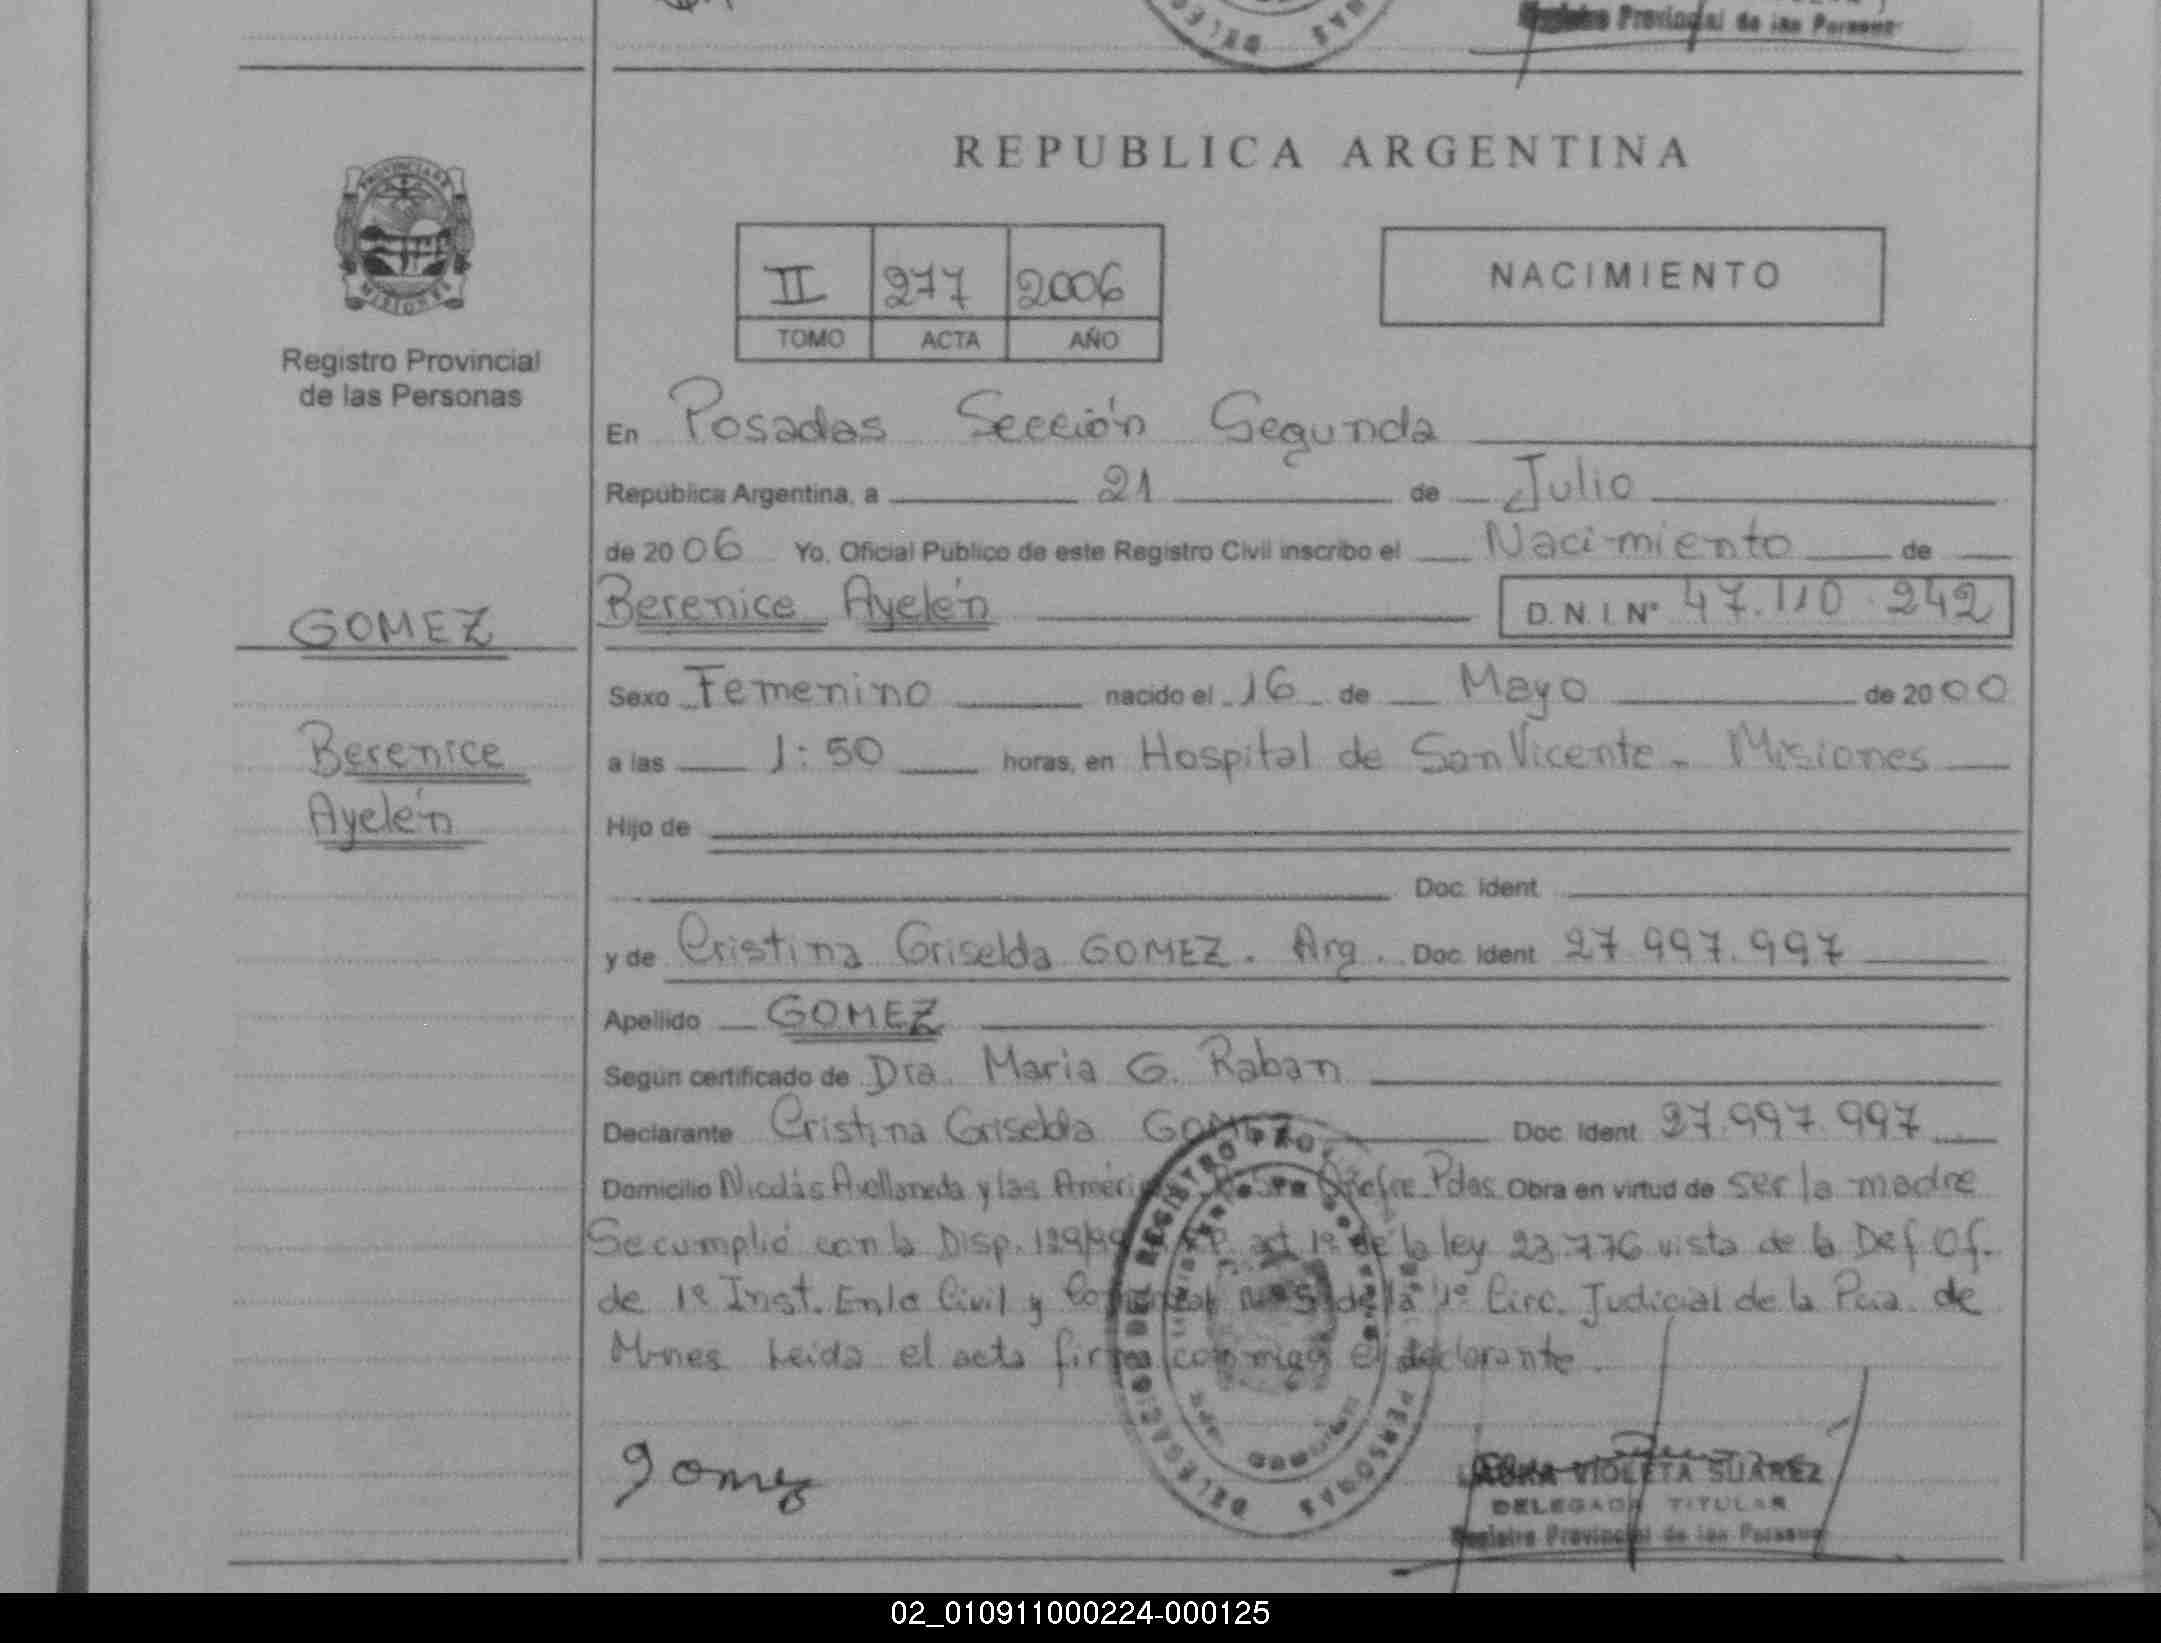 Registro Provincial de las Personas
REPUBLICA ARGENTINA
PROVINCIA DE
MISIONES
Registro Provincial
de las Personas
II 277 2006
TOMO ACTA AÑO
NACIMIENTO
En Posadas Sección Segunda
República Argentina, a 21 de Julio
de 2006 Yo, Oficial Público de este Registro Civil inscribo el Nacimiento de
GOMEZ
Berenice Ayelén D. N. I. N° 47.110.242
Sexo Femenino nacido el 16 de Mayo de 2000
Berenice
a las 1:50 horas, en Hospital de San Vicente - Misiones
Ayelén
Hijo de
Doc. Ident.
y de Cristina Griselda GOMEZ. Arg. Doc. Ident. 27.997.997
Apellido GOMEZ
Según certificado de Dra. Maria G. Raban
Declarante Cristina Griselda GOMEZ Doc. Ident. 27.997.997
Domicilio Nicolás Avellaneda y las Améri Pdas Obra en virtud de ser la madre
Se cumplió con la Disp. 129/99 art 1º de la ley 23.776 vista de la Def. Of.
de 1º Inst. En lo Civil y de la 1º Circ. Judicial de la Pcia. de
Mnes Leida el acta firma conmigo el declarante.
Gomez
DELEGACION DEL REGISTRO PROV PERSONAS
LAURA VIOLETA SUAREZ
DELEGADA TITULAR
Registro Provincial de las Personas
02_010911000224-000125